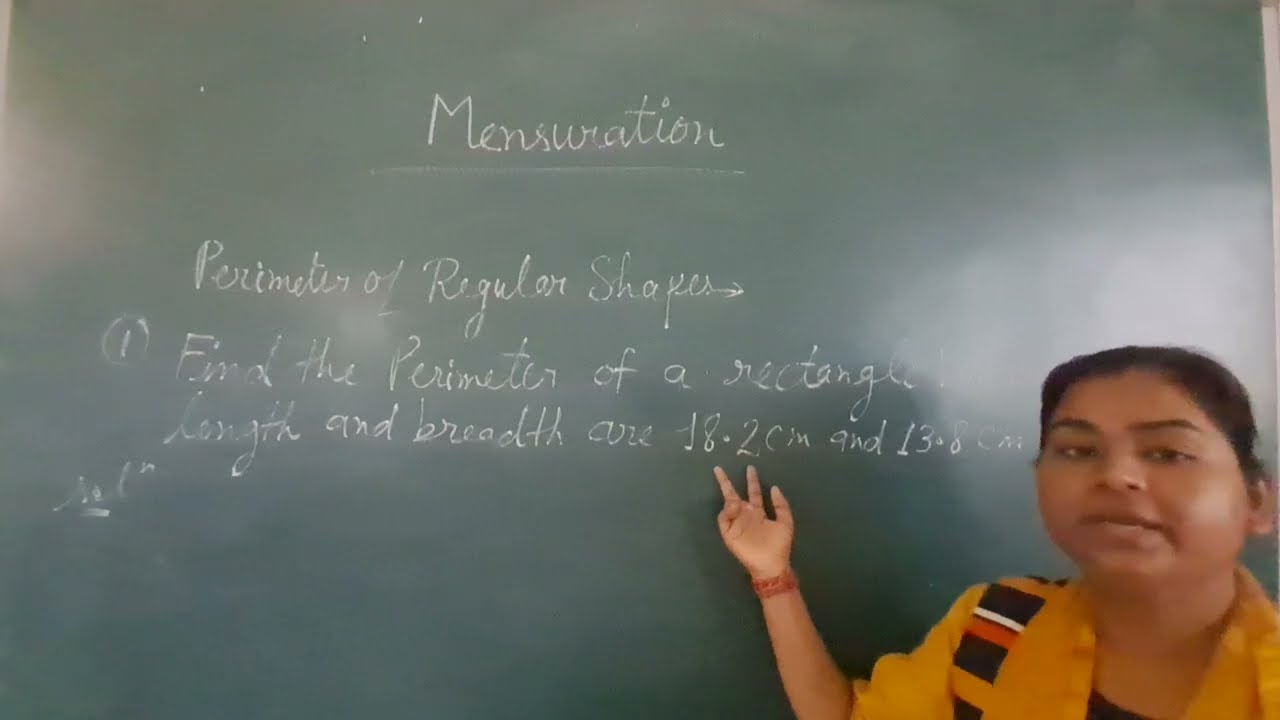 Mensuration
Perimeter of Regular Shapes→
① Find the Perimeter of a rectangle
length and breadth are 18.2cm and 13.8cm
solⁿ